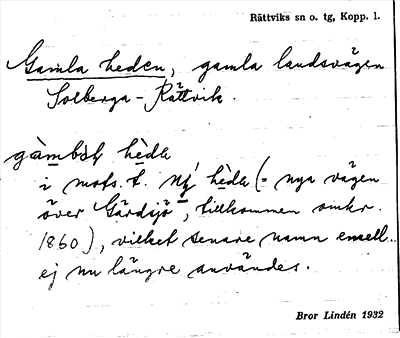 Rättviks sn o. tg, Kopp. l.
Gamla heden, gamla landsvägen
Solberga - Rättvik.
hèdą
i mots. t. hèdą (= nya vägen
över Gärdsjö, tillkommen omkr.
1860), vilket senare namn emell.
ej nu längre användes.
Bror Lindén 1932